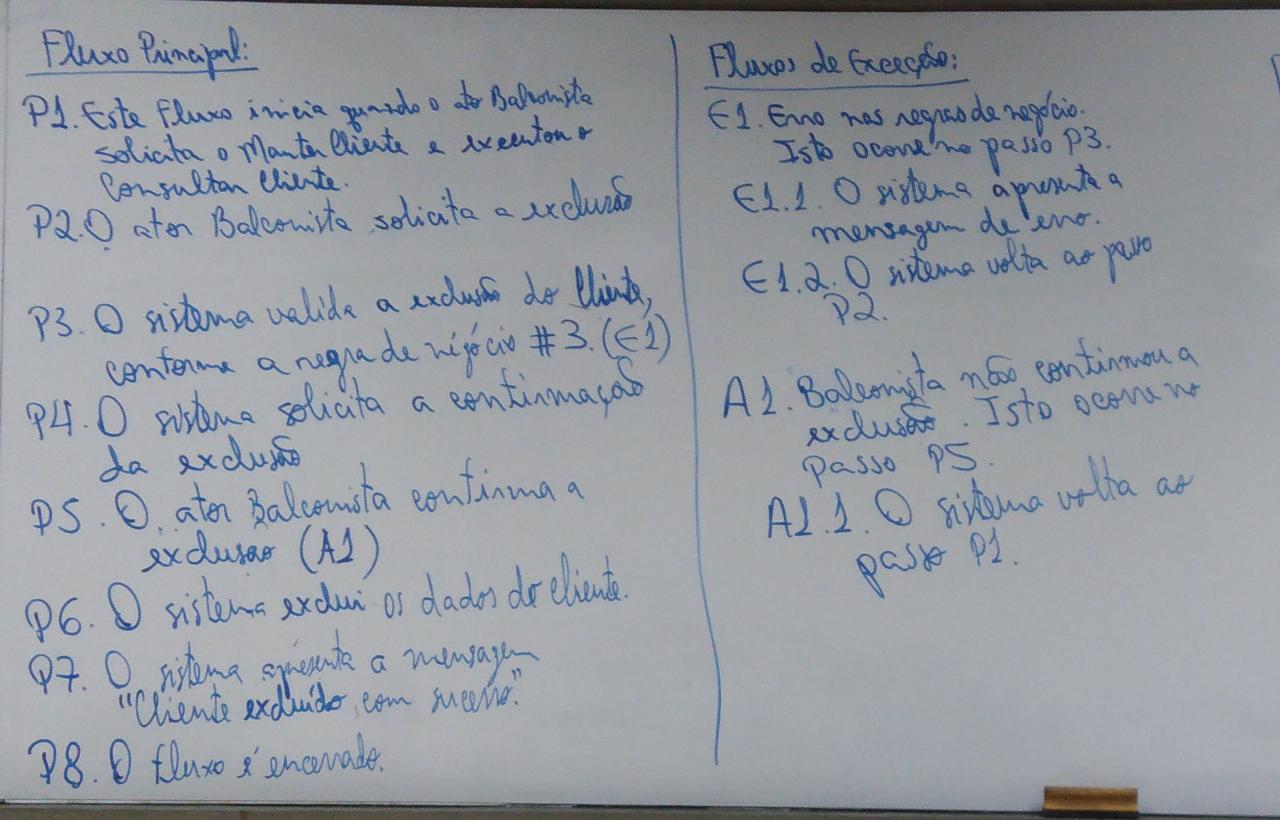 Fluxo Principal:
P1. Este fluxo inicia quando o ator Balconista
solicita o Manter Cliente e executou o
Consultar Cliente.
P2. O ator Balconista solicita a exclusão
P3. O sistema valida a exclusão do Cliente,
conforme a regra de négócio #3. (E1)
P4. O sistema solicita a confirmação
da exclusão
P5. O ator Balconista confirma a
exclusao (A1)
P6. O sistema exclui os dados do cliente.
P7. O sistema apresenta a mensagem
"Cliente excluído com sucesso."
P8. O fluxo é encerrado.
Fluxos de Exceção:
E1. Erro nas regras de negócio.
Isto ocorre no passo P3.
E1.1. O sistema apresenta a
mensagem de erro.
E1.2. O sistema volta ao passo
P2.
A1. Balconista não confirmou a
exclusão. Isto ocorre no
passo P5.
A1.1. O sistema volta ao
passo P1.